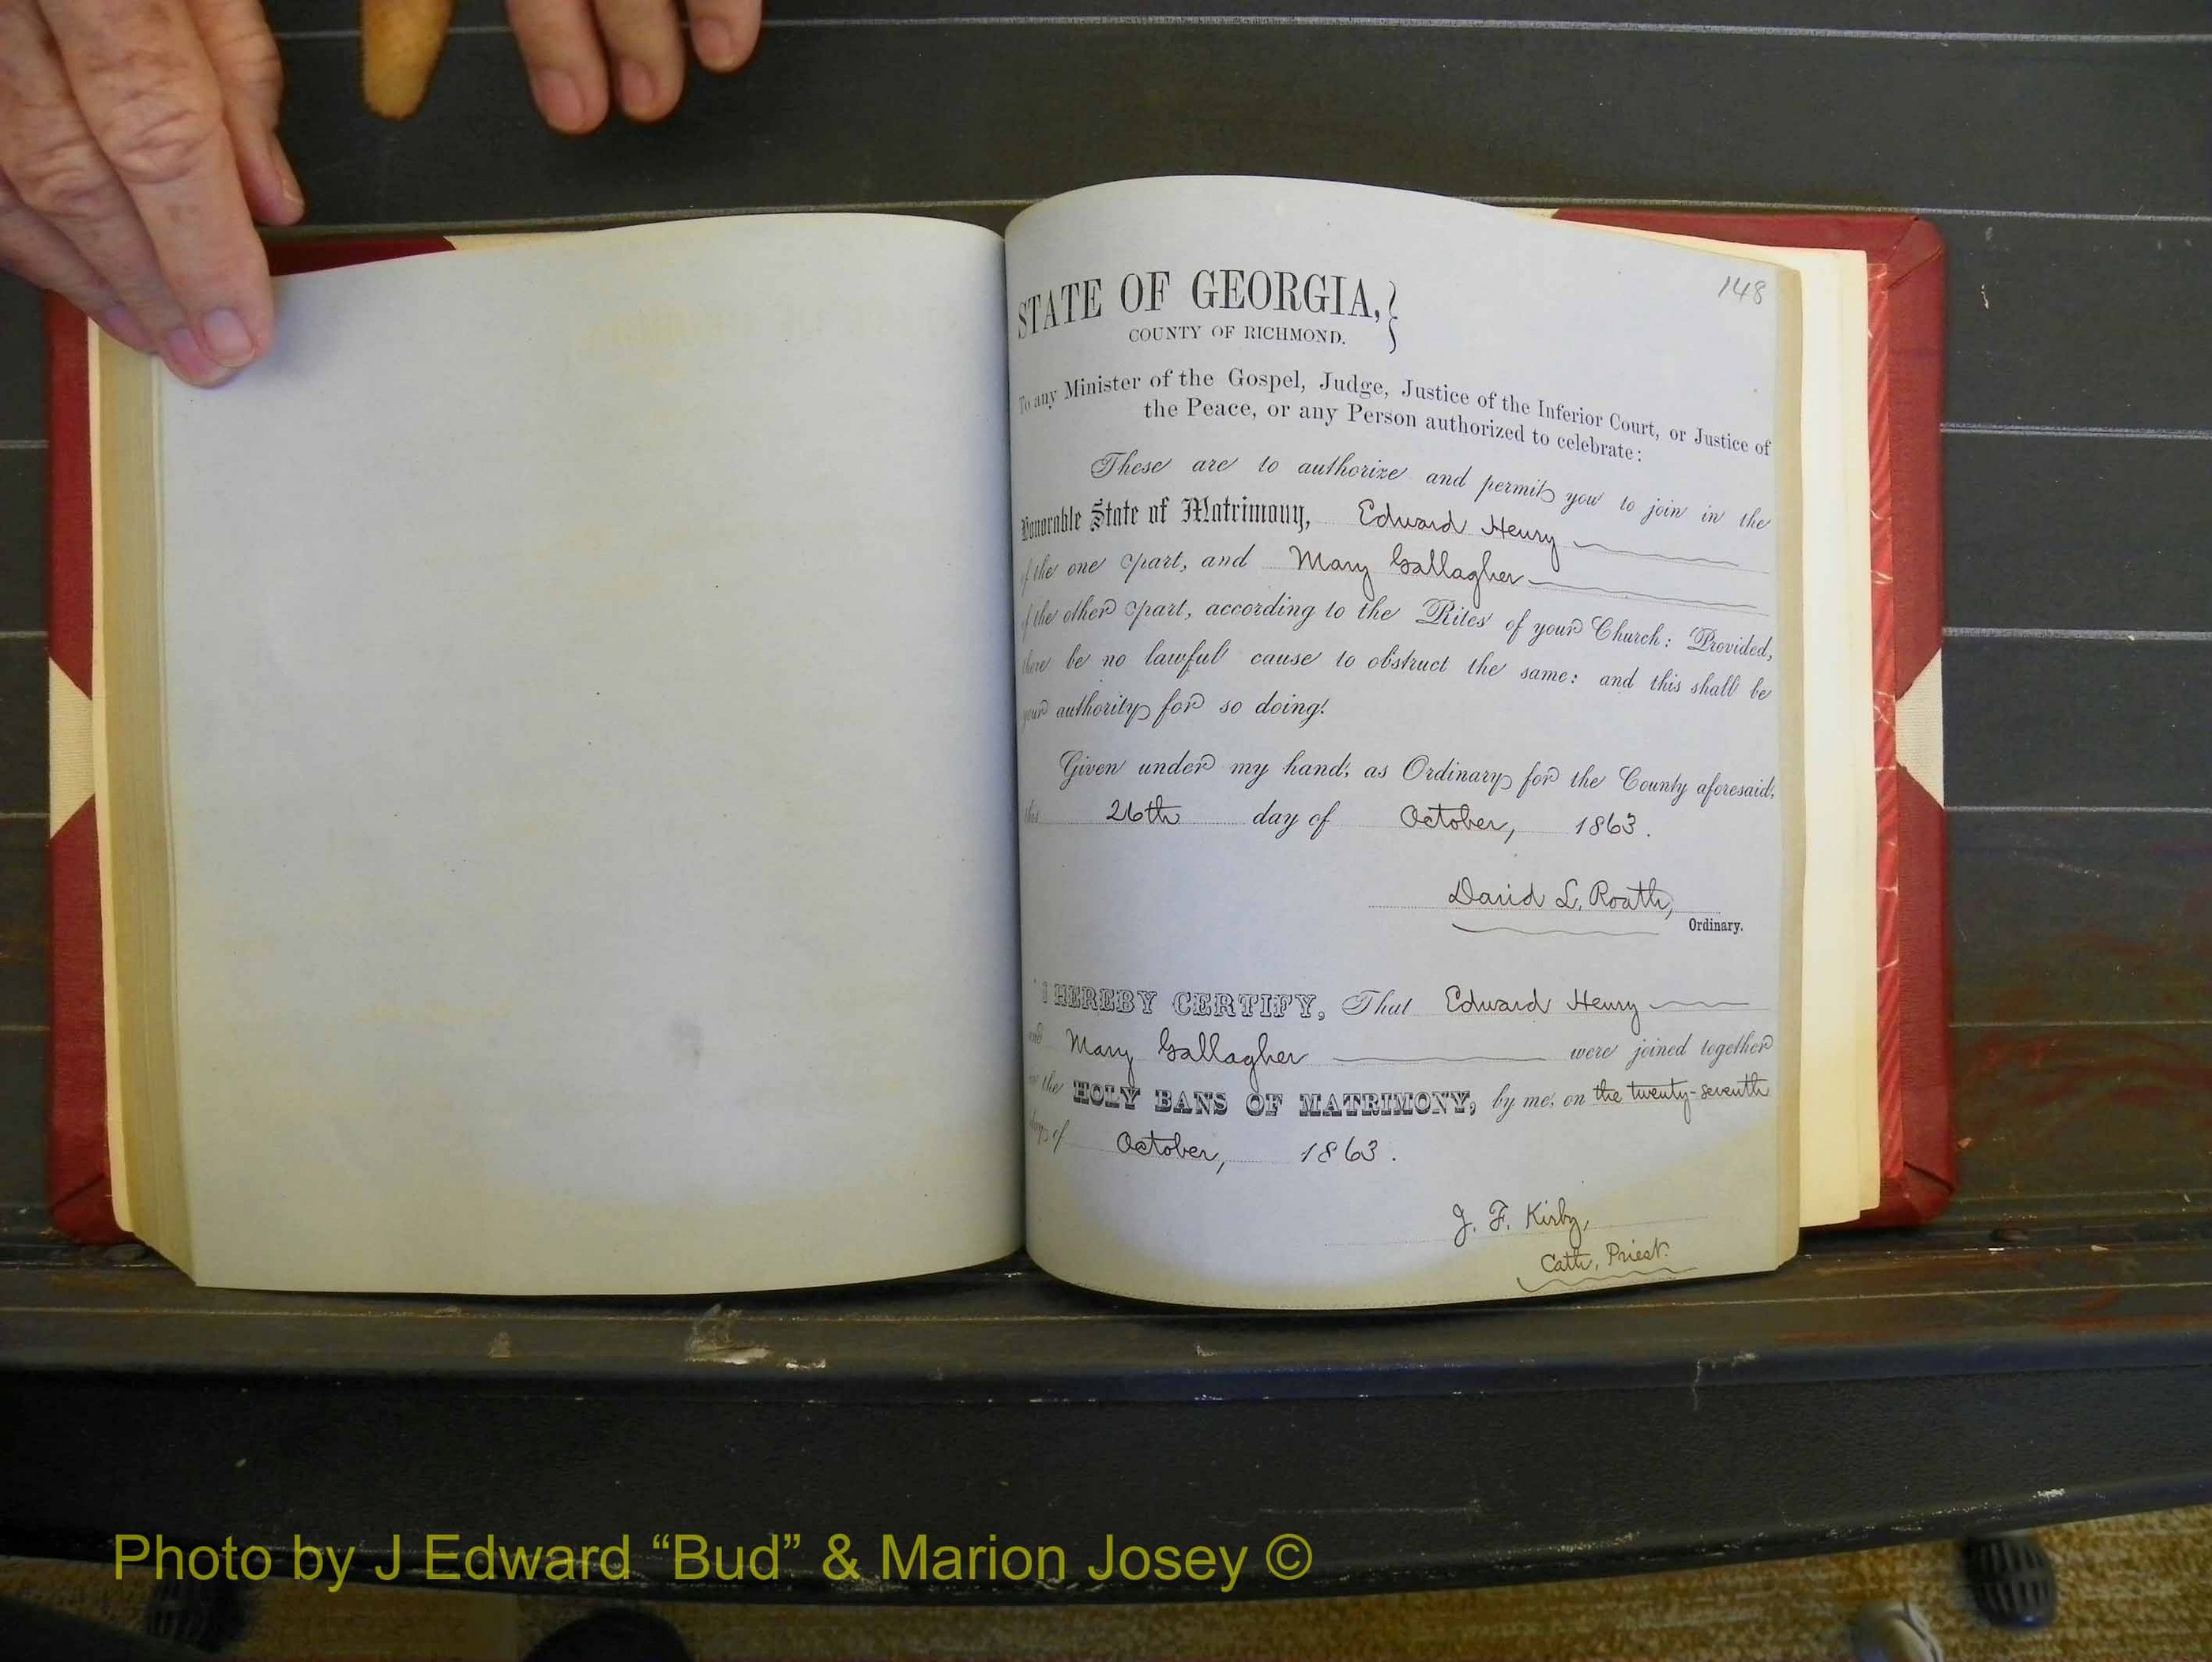 148
STATE OF GEORGIA,
COUNTY OF RICHMOND.
To any Minister of the Gospel, Judge, Justice of the Inferior Court, or Justice of
the Peace, or any Person authorized to celebrate:
These are to authorize and permit you to join in the
Honorable State of Matrimony, Edward Henry
of the one part, and Mary Gallagher
of the other part, according to the Rites of your Church: Provided,
there be no lawful cause to obstruct the same: and this shall be
your authority for so doing.
Given under my hand, as Ordinary for the County aforesaid,
this 26th day of October, 1863.
David L. Roath,
Ordinary.
I HEREBY CERTIFY, That Edward Henry
and Mary Gallagher were joined together
in the HOLY BANS OF MATRIMONY, by me, on the twenty-seventh
day of October, 1863.
J. F. Kirby,
Cath, Priest.
Photo by J Edward “Bud” & Marion Josey ©